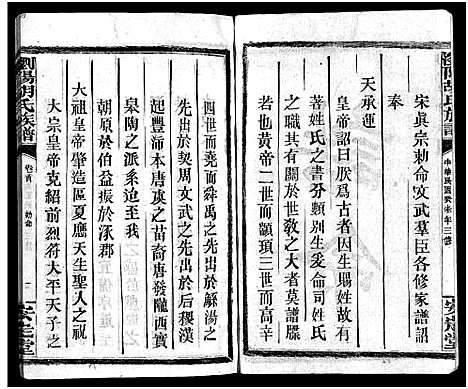 瀏陽胡氏族譜
中華民國癸未年三修
安定堂
宋眞宗勅命文武羣臣各修家譜詔
奉
天承運
皇帝詔曰朕爲古者因生賜姓故有
著姓氏之書分類別生爰命司姓氏
者其有關於世敎之大者莫譜牒
若也黃帝二世而顓頊三世而高辛
四世而堯而舜禹之先出於
湯之
先出於契周文武之先出於后稷漢
起豐沛本唐虞之苗裔唐發隴西實
皋陶之派系我
朝原於伯益振於涿郡
大祖皇帝肇造區夏應天生聖人之祝
大宗皇帝克紹前烈符大平天子之
瀏陽胡氏族譜
卷首
勅命
二
安定堂